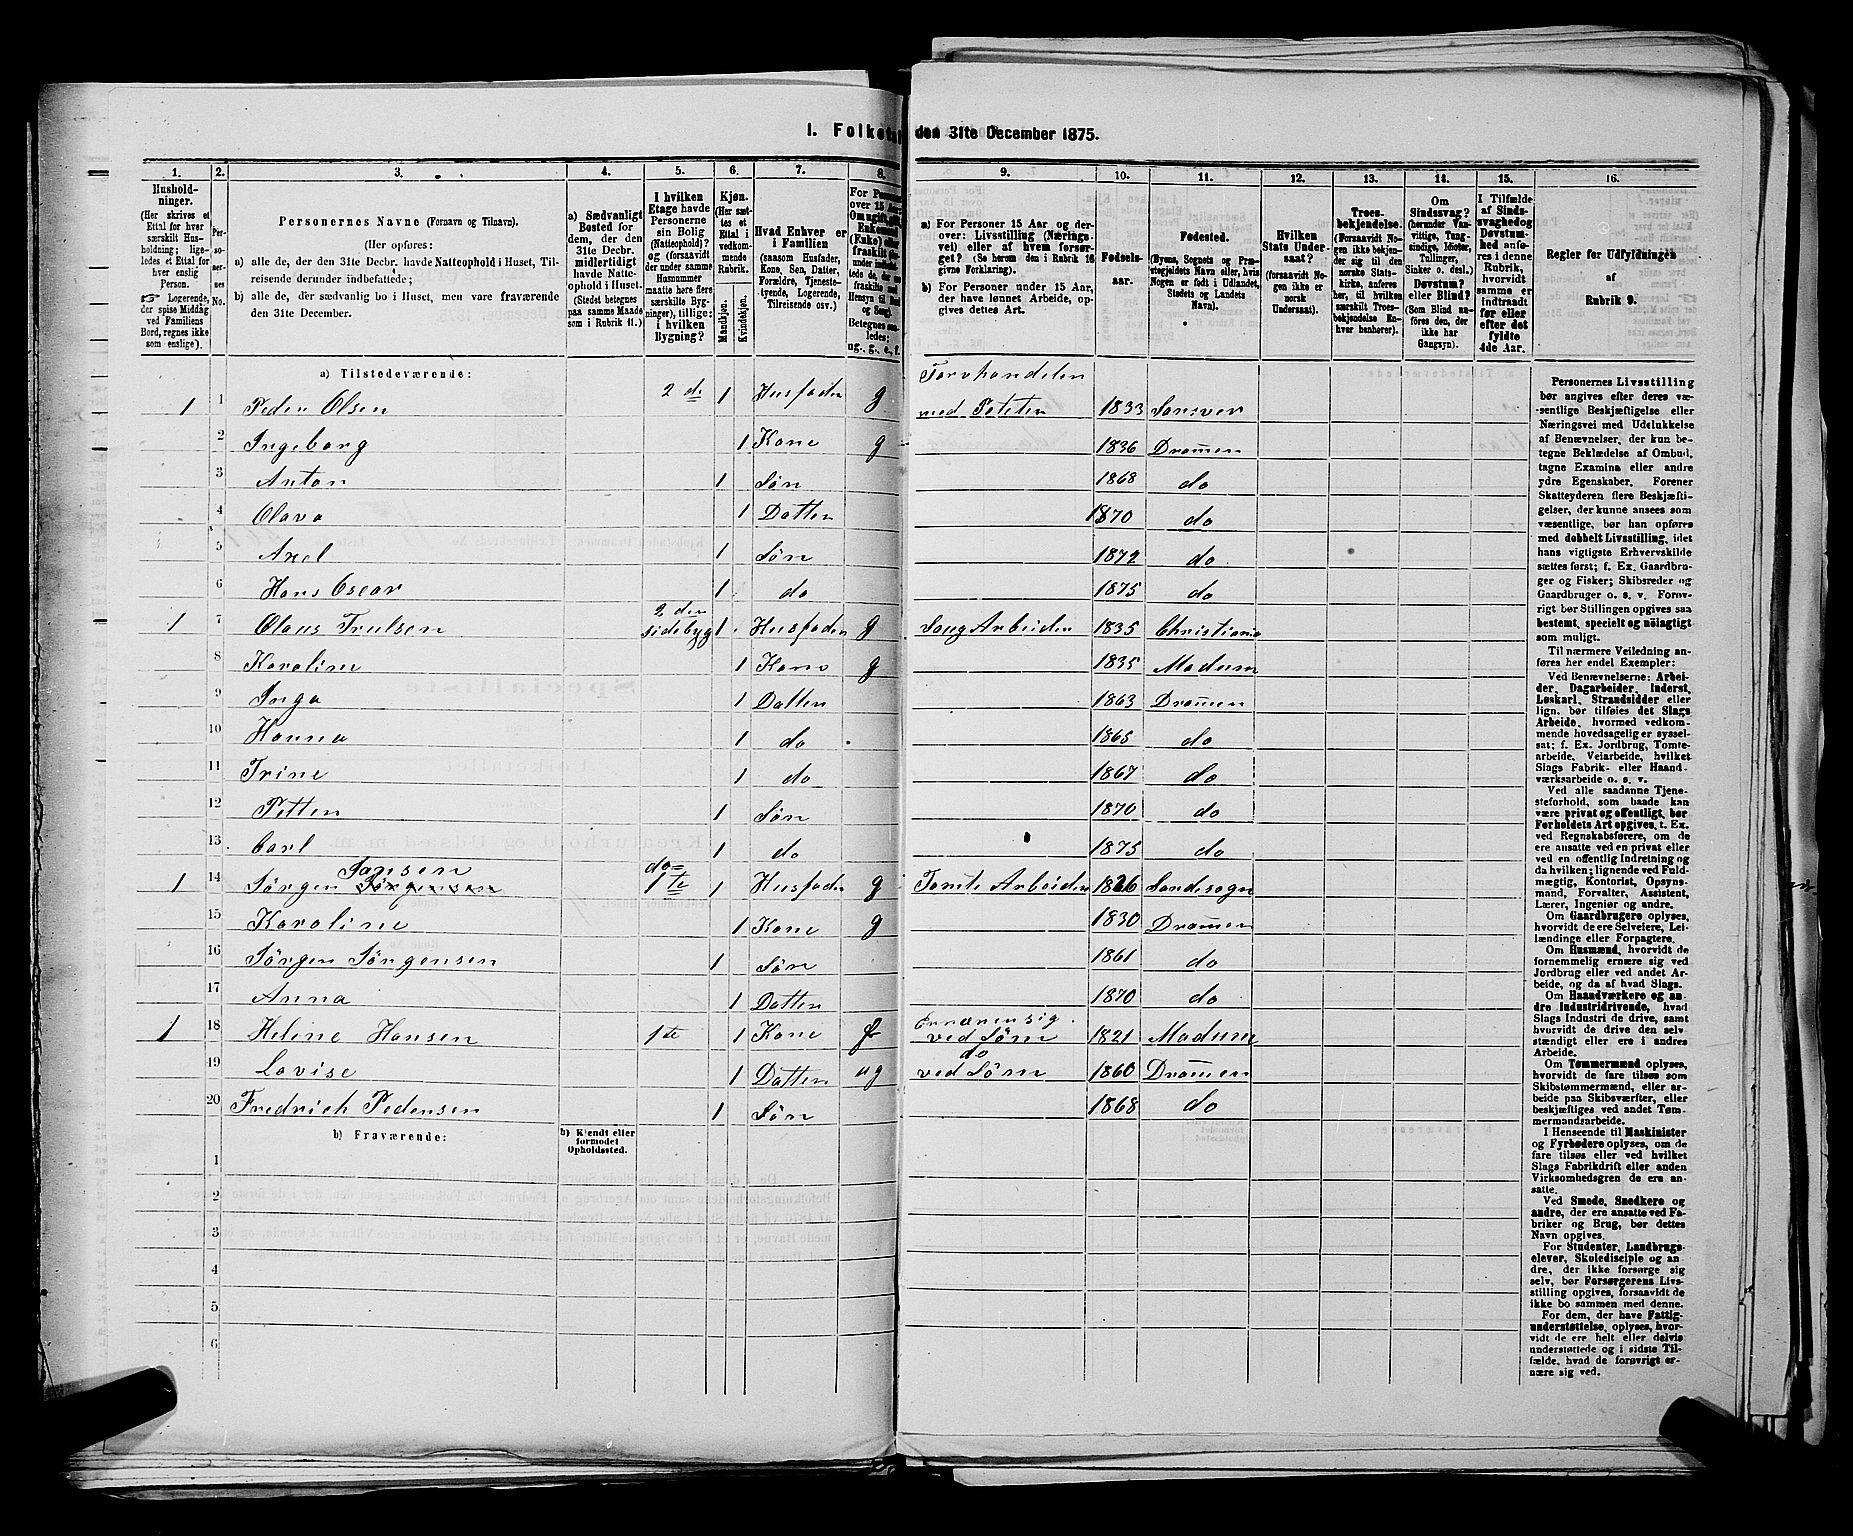 I. Folketal den 31te December 1875.
1. 2. 3. 4. 5. 6. 7. 8. 9. 10. 11. 12. 13. 14. 15. 16.
Husholdninger. (Her skrives et Ettal for hver særskilt Husholdning; ligeledes et Ettal for hver enslig Person. Logerende, der spise Middag ved Familiens Bord, regnes ikke som enslige).
Personernes No.
Personernes Navne (Fornavn og Tilnavn).
(Her opføres:
a) alle de, der den 31te Decbr. havde Natteophold i Huset, Tilreisende derunder indbefattede;
b) alle de, der sædvanlig bo i Huset, men vare fraværende den 31te December.
a) Sædvanligt Bosted for dem, der den 31te Decbr. midlertidigt havde Natteophold i Huset. (Stedet betegnes paa samme Maade som i Rubrik 11.)
I hvilken Etage havde Personerne sin Bolig (Natteophold)? og (forsaavidt der under samme Husnummer matte høre flere særskilte Bygninger), tillige: i hvilken Bygning?
Kjøn. (Her sættes et Ettal i vedkommende Rubrik.
Mandkjøn. Kvindekjøn.
Hvad Enhver er i Familien (saasom Husfader, Kone, Søn, Datter, Forældre, Tjenestetyende, Logerende, Tilreisende osv.)
a) For Personer 15 Aar og derover: Livsstilling (Næringsvei) eller af hvem forsørget? (Se herom den i Rubrik 16 givne Forklaring).
b) For Personer under 15 Aar, der have lønnet Arbeide, opgives dettes Art.
Fødselsaar.
Fødested. (Byens, Sognets og Præstegjeldets Navn eller, hvis Nogen er født i Udlandet, Stedets og Landets Navn).
Hvilken Stats Undersaat? (forsaavidt Nogen ikke er norsk Undersaat).
Troesbekjendelse. (Forsaavidt Nogen ikke bekjender sig til den norske Statskirke, anføres her, til hvilken særskilt Troesbekjendelse Enhver henhører).
Om Sindssvag? (herunder Vanvittige, Tungsindige, Idioter, Tullinger, Sinker o. desl.) Døvstum? eller Blind? (Som Blind anføres den, der ikke har Gangsyn).
I Tilfælde af Sindssvaghed og Døvstumhed anføres i denne Rubrik, hvorvidt samme er indtraadt før eller efter det fyldte 4de Aar.
Regler for Udfyldningen af Rubrik 9.
a) Tilstedeværende:
1 1 Peder Olsen 2 de 1 Husfader g Torvhandeler med Poteter 1833 Sansver
2 Ingeborg 1 Kone g 1836 Dramen
3 Anton 1 Søn 1868 do
4 Olava 1 Datter 1870 do
5 Axel 1 Søn 1872 do
6 Hans Oscar 1 do 1875 do
1 7 Olaus Trulsen 2 den sidebyg 1 Husfader g Saug Arbeider 1835 Christiania
8 Karoline 1 Kone g 1835 Modum
9 Inga 1 Datter 1863 Dramen
10 Hanna 1 do 1865 do
11 Trine 1 do 1867 do
12 Petter 1 Søn 1870 do
13 Carl 1 do 1875 do
1 14 Jørgen Jansen Jørgensen do 1te 1 Husfader g Tomte Arbeider 1826 Sandesogn
15 Karoline 1 Kone g 1830 Dramen
16 Jørgen Jørgensen 1 Søn 1861 do
17 Anna 1 Datter 1870 do
1 18 Heline Hansen 1te 1 Kone f Ernærer sig ved Søm 1821 Modum
19 Lovise 1 Datter ug do ved Søm 1860 Dramen
20 Fredrich Pedersen 1 Søn 1868 do
b) Fraværende:
b) Kjendt eller formodet Opholdssted.
1
2
3
4
5
6
Personernes Livsstilling bør angives efter deres væsentlige Beskjæftigelse eller Næringsvei med Udelukkelse af Benævnelser, der kun betegne Beklædelse af Ombud, tagne Examina eller andre ydre Egenskaber. Forener Skatteyderen flere Beskjæftigelser, der kunne ansees som væsentlige, bør han opføres med dobbelt Livsstilling, idet hans vigtigste Erhvervskilde sættes først; f. Ex. Gaardbruger og Fisker; Skibsreder og Gaardbruger o. s. v. Forøvrigt bør Stillingen opgives saa bestemt, specielt og nøiagtigt som muligt.
Til nærmere Veiledning anføres her endel Exempler:
Ved Benævnelserne: Arbeider, Dagarbeider, Inderst, Løskarl, Strandsidder eller lign. bør tilføies det Slags Arbeide, hvormed vedkommende hovedsagelig er sysselsat; f. Ex. Jordbrug, Tomtearbeide, Veiarbeide, hvilket Slags Fabrik- eller Haandværksarbeide o. s. v.
Ved alle saadanne Tjenesteforhold, som baade kan være privat og offentligt, bør Forholdets Art opgives, t. Ex. ved Regnskabsførere, om de ere ansatte ved en privat eller ved en offentlig Indretning og da hvilken; lignende ved Fuldmægtig, Kontorist, Opsynsmand, Forvalter, Assistent, Lærer, Ingeniør og andre.
Om Gaardbrugere oplyses, hvorvidt de ere Selveiere, Leilændinge eller Forpagtere.
Om Husmænd, hvorvidt de fornemmelig ernære sig ved Jordbrug eller ved andet Arbeide, og da af hvad Slags.
Om Haandværkere og andre Industridrivende, hvad Slags Industri de drive, samt hvorvidt de drive den selvstændigt eller ere i andres Arbeide.
Om Tømmermænd oplyses, hvorvidt de fare tilsøs som Skibstømmermænd, eller arbeide paa Skibsværfter, eller beskjæftiges ved andet Tømmermandsarbeide.
I Henseende til Maskinister og Fyrbødere oplyses, om de fare tilsøs eller ved hvilket Slags Fabrikdrift eller anden Virksomhedsgren de ere ansatte.
Ved Smede, Snedkere og andre, der ere ansatte ved Fabriker og Brug, bør dettes Navn opgives.
For Studenter, Landbrugselever, Skoledisciple og andre, der ikke forsørge sig selv, bør Forsørgerens Livsstilling opgives, forsaavidt de ikke bo sammen med denne.
For dem, der have Fattigunderstøttelse, oplyses, hvorvidt de ere helt eller delvis understøttede og i sidste Tilfælde, hvad de forøvrigt ernære sig ved.